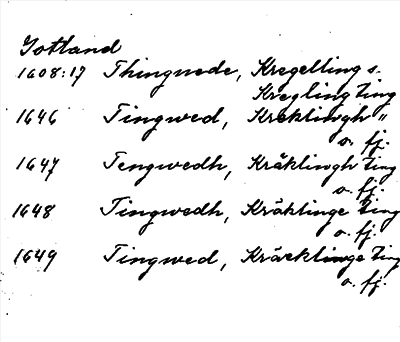 Gotland
1608:17 Thingwede, Kregelling s.
Kregling Ting
1646 Tingwed, Kreklingh "
o. fj.
1647 Tengwedh, Kräklingh Ting
o. fj.
1648 Tingwedh, Kräklinge Ting
o. fj.
1649 Tingwed, Kräcklinge Ting
o. fj.